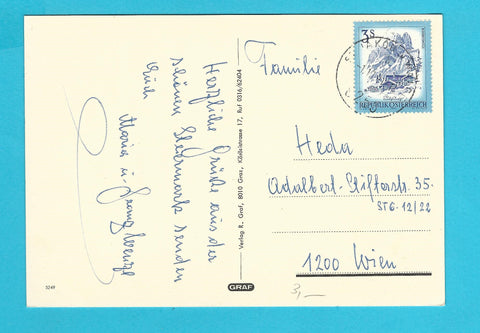 Herzliche Grüße aus der
schönen Steiermark senden
Euch
Maria u.
Verlag R. Graf, 8010 Graz, Köddelstrasse 17, Ruf 0316/62404
GRAF
5249
3 S
REPUBLIK ÖSTERREICH
Familie
Heda
Adalbert-Stifterstr. 35.
STG-12/22
1200 Wien
3,—